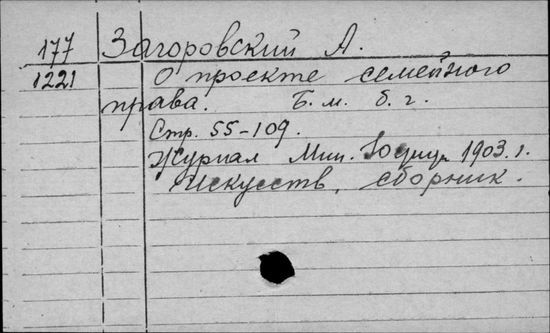 177 Загоровский А.
1221 О проекте семейного
права. Б. м. б. г.
Стр. 55-109.
Журнал Мин. Юстиц. 1903 г.
Искусств. сборник.